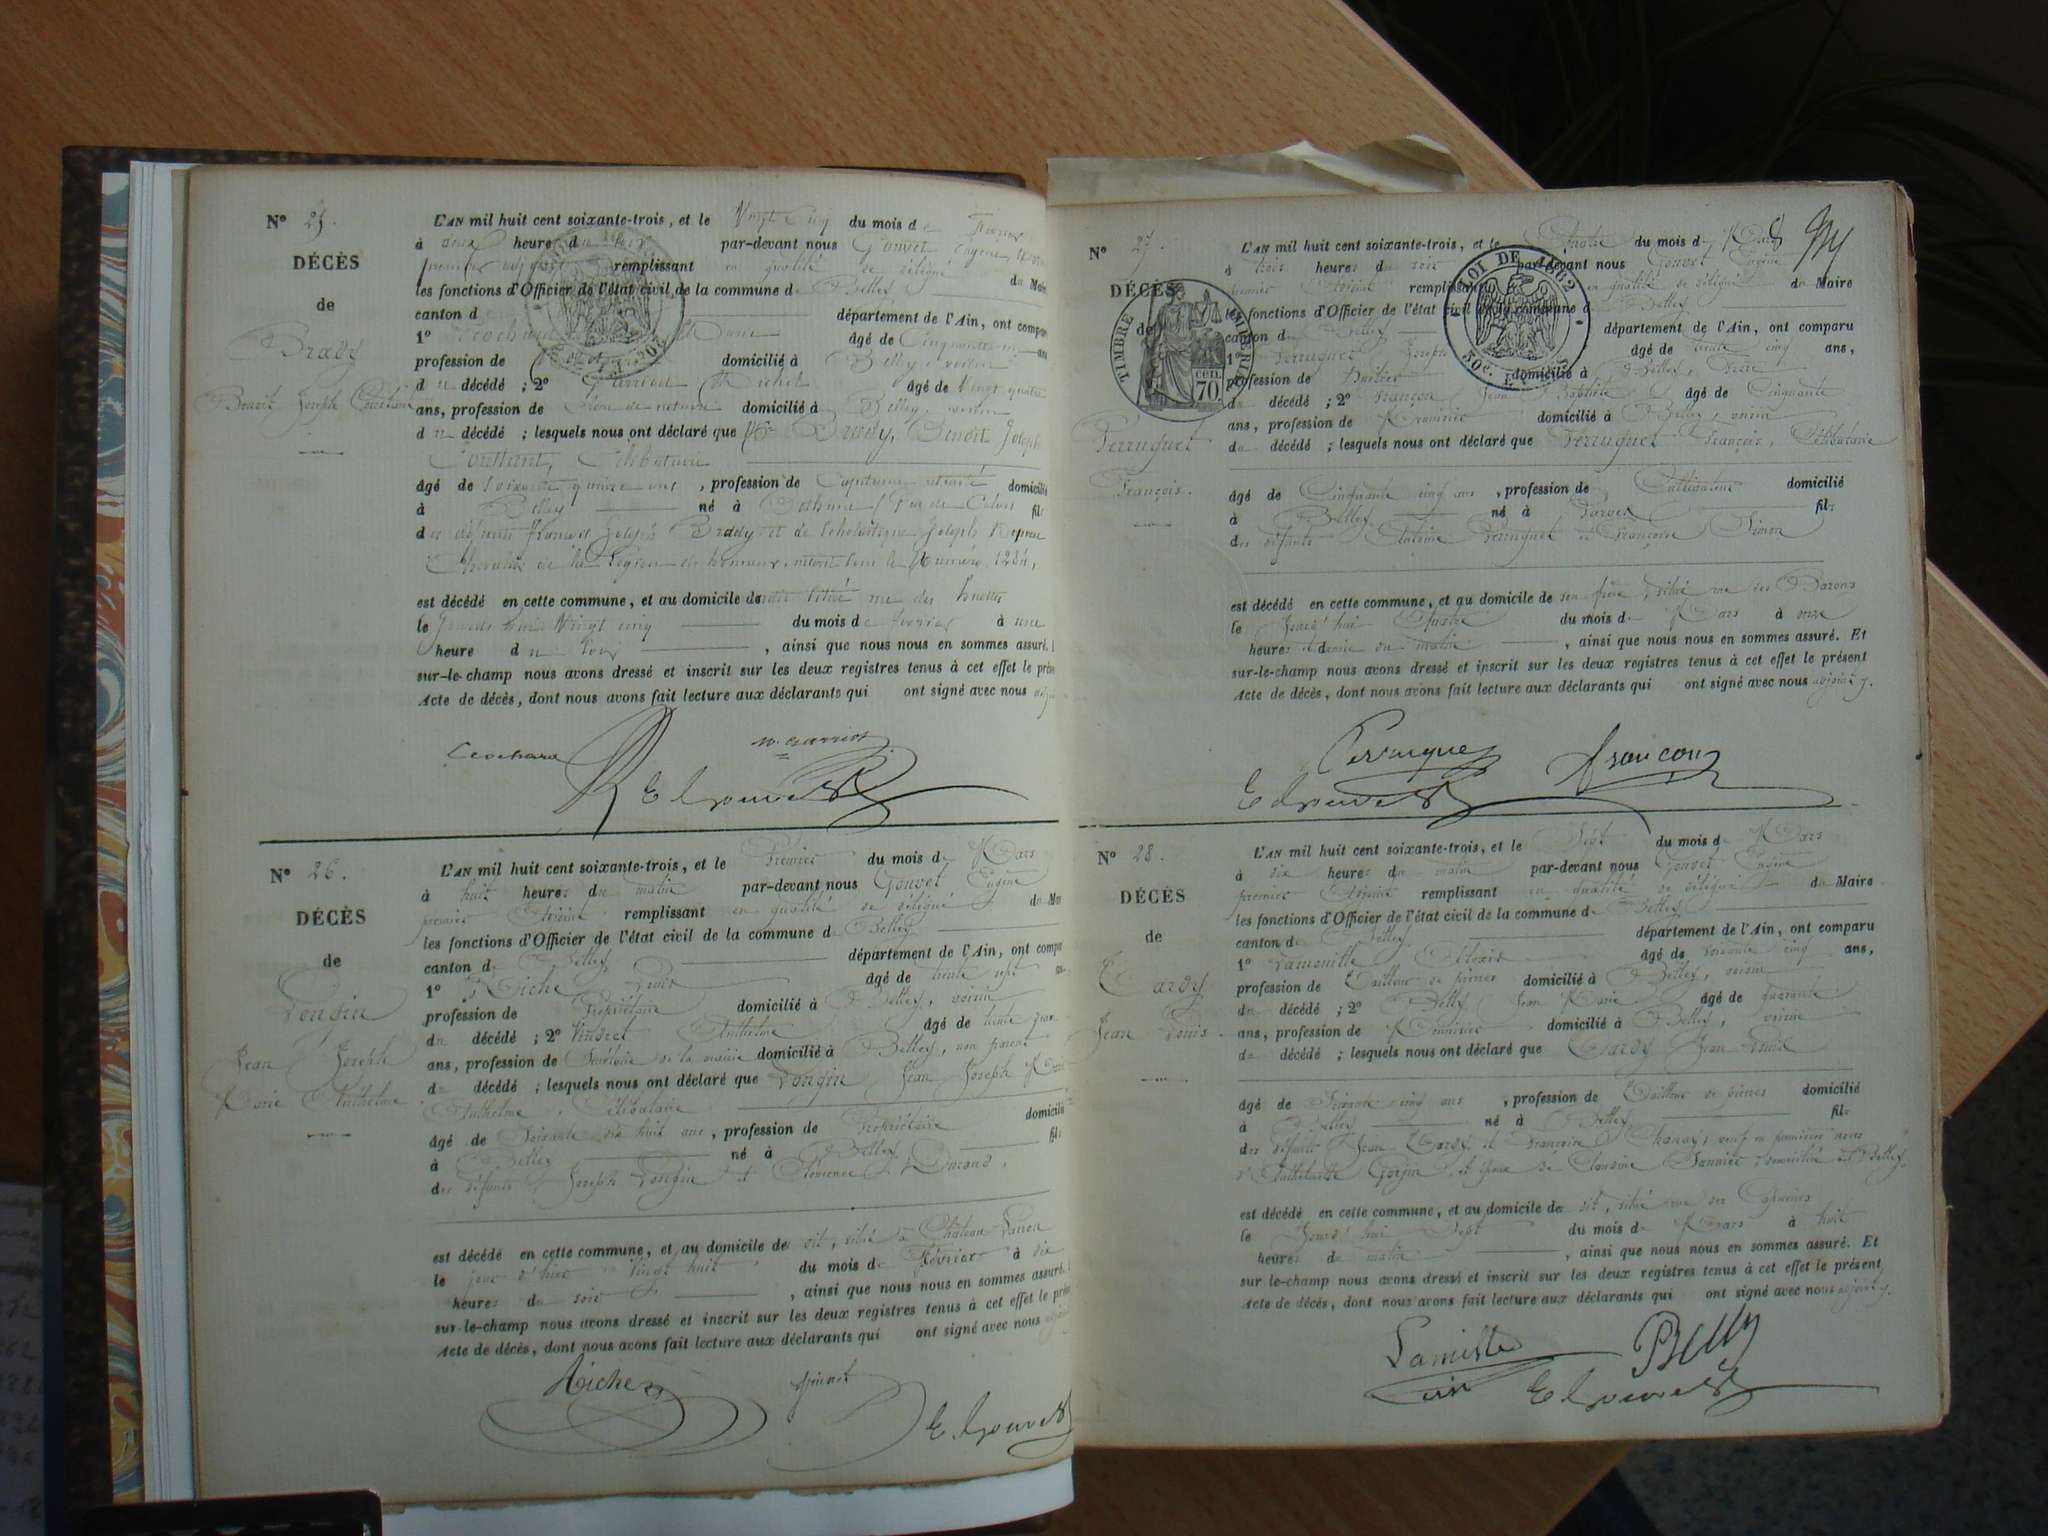 N° 25.
DÉCÈS
de
Brady
Benoit Joseph Constant
L'AN mil huit cent soixante-trois, et le Vingt Cinq du mois de Février
à deux heures du soir par-devant nous Gouvet Eugène
premier adjoint remplissant en qualité de délégué du Maire
les fonctions d'Officier de l'état civil de la commune de Belley
canton d département de l'Ain, ont comparu
1° âgé de Cinquante ans
profession de domicilié à Belley, voisin
du décédé ; 2° Michel âgé de Vingt quatre
ans, profession de Clerc de notaire domicilié à Belley, voisin
du décédé ; lesquels nous ont déclaré que Mr Brady, Benoit Joseph
Constant, Célibataire
âgé de soixante quinze ans, profession de Capitaine retraité domicilié
à Belley né à Béthune, Pas de Calais fils
des défunts François Joseph Brady et de Scholastique Joseph
Chevalier de la Légion d'honneur, inscrit sous le Numéro
est décédé en cette commune, et au domicile de situé rue des
le jourd'hui Vingt cinq du mois de février à une
heure du soir, ainsi que nous nous en sommes assuré. E
sur-le-champ nous avons dressé et inscrit sur les deux registres tenus à cet effet le prése
Acte de décès, dont nous avons fait lecture aux déclarants qui ont signé avec nous
E Gouvet
N° 26.
DÉCÈS
de
Longin
Jean Joseph
Marie Anthelme
L'AN mil huit cent soixante-trois, et le Premier du mois de Mars
à huit heures du matin par-devant nous Gouvet Eugène
premier Adjoint remplissant en qualité de délégué du Mai
les fonctions d'Officier de l'état civil de la commune de Belley
canton de Belley département de l'Ain, ont compa
1° Riche Louis âgé de trente sept an
profession de Propriétaire domicilié à Belley, voisin
du décédé ; 2° Vindret Anthelme âgé de trente
ans, profession de Secrétaire de la mairie domicilié à Belley, non parent
du décédé ; lesquels nous ont déclaré que Longin Jean Joseph Marie
Anthelme, Célibataire
âgé de Soixante dix huit ans, profession de Propriétaire domicilié
à Belley né à Belley fils
des défunts Joseph Longin et Florence Durand,
est décédé en cette commune, et au domicile de dit, situé à Château
le jour d'hier Vingt huit du mois de Février à dix
heures du soir, ainsi que nous nous en sommes assuré.
sur-le-champ nous avons dressé et inscrit sur les deux registres tenus à cet effet le prése
Acte de décès, dont nous avons fait lecture aux déclarants qui ont signé avec nous
Riche
E. Gouvet
N° 27.
DÉCÈS
de
Perruquet
François.
TIMBRE IMPÉRIAL
CEN. 70.
LOI DE 1862
L'AN mil huit cent soixante-trois, et le Quatre du mois de Mars
à trois heures du soir par-devant nous Gouvet Eugène
premier Adjoint remplissant en qualité de délégué du Maire
les fonctions d'Officier de l'état civil de la commune de Belley
canton de Belley département de l'Ain, ont comparu
1° Perruquet Joseph âgé de trente cinq ans,
profession de domicilié à Belley, frère
du décédé ; 2° Françon Jean Baptiste âgé de Cinquante
ans, profession de Menuisier domicilié à Belley, voisin
du décédé ; lesquels nous ont déclaré que Perruquet François, Célibataire
âgé de Cinquante cinq ans, profession de Cultivateur domicilié
à Belley né à Parves fils
des défunts Antoine Perruquet et Françoise Simon
est décédé en cette commune, et au domicile de son frère, situé rue des Barons
le Jourd'hui Quatre du mois de Mars à onze
heures et demie du matin, ainsi que nous nous en sommes assuré. Et
sur-le-champ nous avons dressé et inscrit sur les deux registres tenus à cet effet le présent
Acte de décès, dont nous avons fait lecture aux déclarants qui ont signé avec nous adjoint
Perruquet Françon
E Gouvet
N° 28.
DÉCÈS
de
Cardy
Jean Louis.
L'AN mil huit cent soixante-trois, et le Sept du mois de Mars
à dix heures du matin par-devant nous Gouvet Eugène
premier Adjoint remplissant en qualité de délégué du Maire
les fonctions d'Officier de l'état civil de la commune de Belley
canton de Belley département de l'Ain, ont comparu
1° Alexis âgé de soixante cinq ans,
profession de Tailleur de pierres domicilié à Belley, voisin
du décédé ; 2° Belly Jean Marie âgé de quarante
ans, profession de Menuisier domicilié à Belley, voisin
du décédé ; lesquels nous ont déclaré que Cardy Jean Louis
âgé de Soixante cinq ans, profession de Tailleur de pierres domicilié
à Belley né à Belley fils
des défunts Jean Cardy et Françoise veuf en premières noces
d'Anthelmette et époux de Claudine domiciliée à Belley.
est décédé en cette commune, et au domicile de dit, situé rue des Capucins
le Jourd'hui Sept du mois de Mars à huit
heures du matin, ainsi que nous nous en sommes assuré. Et
sur le-champ nous avons dressé et inscrit sur les deux registres tenus à cet effet le présent
Acte de décès, dont nous avons fait lecture aux déclarants qui ont signé avec nous adjoint
Belly
E Gouvet